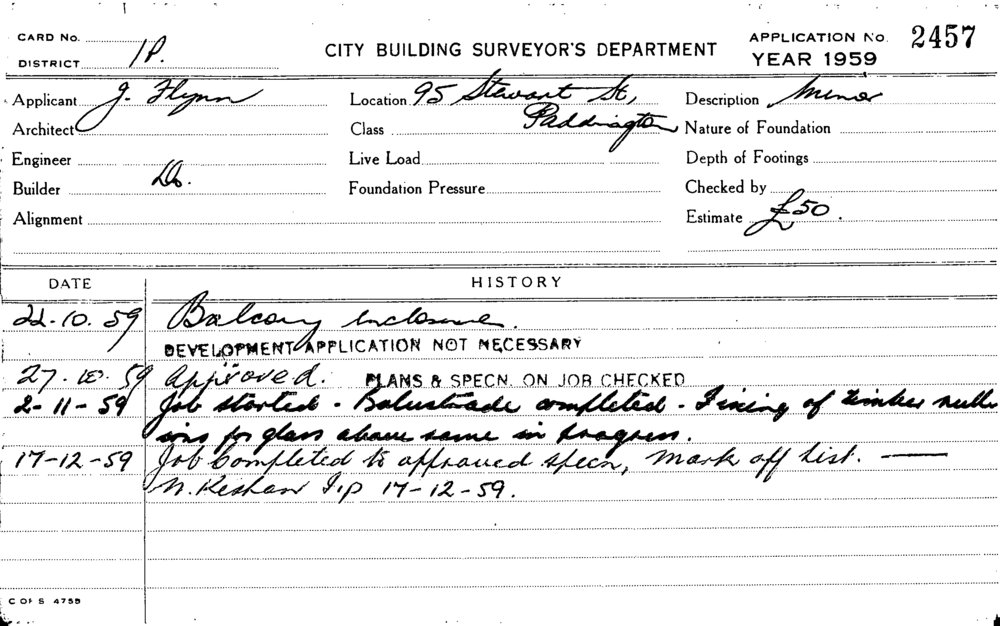 CARD No.
DISTRICT 1P.
CITY BUILDING SURVEYOR'S DEPARTMENT
APPLICATION No. 2457
YEAR 1959
Applicant J. Flynn
Location 95 Stewart St,
Paddington
Description Minor
Architect
Class
Nature of Foundation
Engineer
Live Load
Depth of Footings
Builder Do.
Foundation Pressure
Checked by
Alignment
Estimate £50.
DATE HISTORY
22.10.59 Balcony inclosure.
DEVELOPMENT APPLICATION NOT NECESSARY
27.10.59 Approved. PLANS & SPECN. ON JOB CHECKED
2-11-59 Job started - Balustrade completed - Fixing of timber mull-
ions for glass above same in progress.
17-12-59 Job completed to approved specn, mark off list.
N. I.p 17-12-59.
C OF S 4755